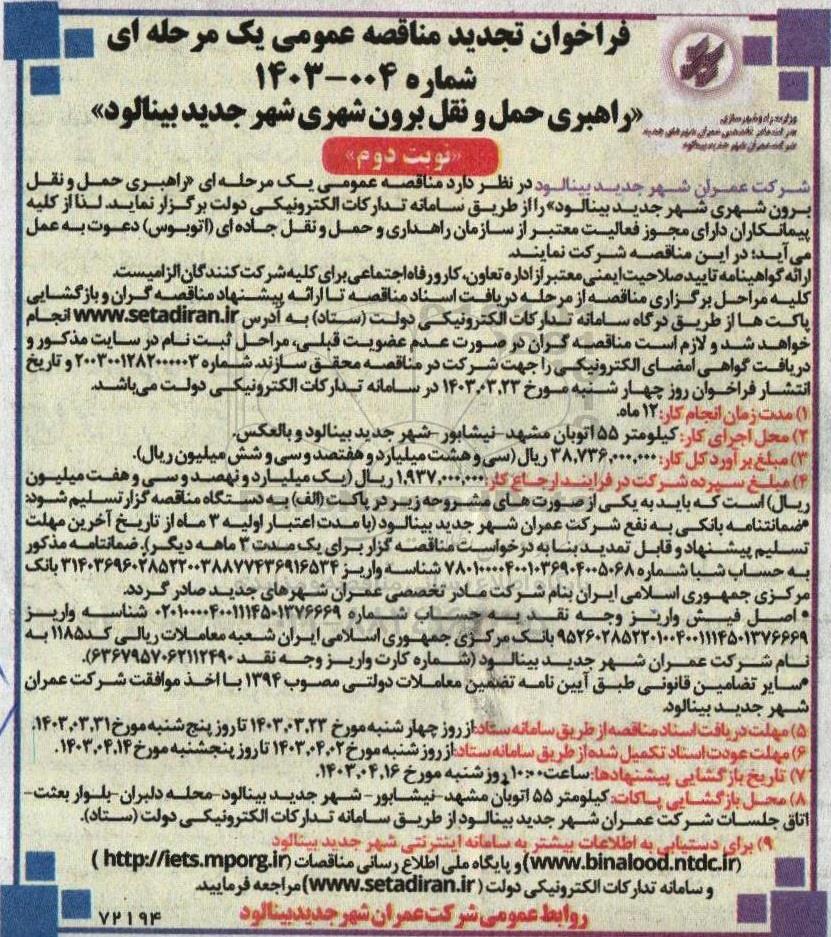 فراخوان تجدید مناقصه عمومی یک مرحله ای
شماره ۰۰۴-۱۴۰۳
«راهبری حمل و نقل برون شهری شهر جدید بینالود»
وزارت راه و شهرسازی
شرکت مادر تخصصی عمران شهرهای جدید
شرکت عمران شهر جدید بینالود
«نوبت دوم»
شرکت عمران شهر جدید بینالود در نظر دارد مناقصه عمومی یک مرحله ای «راهبری حمل و نقل
برون شهری شهر جدید بینالود» را از طریق سامانه تدارکات الکترونیکی دولت برگزار نماید. لذا از کلیه
پیمانکاران دارای مجوز فعالیت معتبر از سازمان راهداری و حمل و نقل جاده ای (اتوبوس) دعوت به عمل
می آید؛ در این مناقصه شرکت نمایند.
ارائه گواهینامه تایید صلاحیت ایمنی معتبر از اداره تعاون، کار و رفاه اجتماعی برای کلیه شرکت کنندگان الزامیست.
کلیه مراحل برگزاری مناقصه از مرحله دریافت اسناد مناقصه تا ارائه پیشنهاد مناقصه گران و بازگشایی
پاکت ها از طریق درگاه سامانه تدارکات الکترونیکی دولت (ستاد) به آدرس www.setadiran.ir انجام
خواهد شد و لازم است مناقصه گران در صورت عدم عضویت قبلی، مراحل ثبت نام در سایت مذکور و
دریافت گواهی امضای الکترونیکی را جهت شرکت در مناقصه محقق سازند. شماره ۲۰۰۳۰۰۱۲۸۲۰۰۰۰۰۳ و تاریخ
انتشار فراخوان روز چهار شنبه مورخ ۱۴۰۳.۰۳.۲۳ در سامانه تدارکات الکترونیکی دولت می‌باشد.
۱) مدت زمان انجام کار: ۱۲ ماه.
۲) محل اجرای کار: کیلومتر ۵۵ اتوبان مشهد- نیشابور -شهر جدید بینالود و بالعکس.
۳) مبلغ برآورد کل کار: ۳۸,۷۳۶,۰۰۰,۰۰۰ ریال (سی و هشت میلیارد و هفتصد و سی و شش میلیون ریال).
۴) مبلغ سپرده شرکت در فرایند ارجاع کار: ۱,۹۳۷,۰۰۰,۰۰۰ ریال (یک میلیارد و نهصد و سی و هفت میلیون
ریال) است که باید به یکی از صورت های مشروحه زیر در پاکت (الف) به دستگاه مناقصه گزار تسلیم شود:
*ضمانتنامه بانکی به نفع شرکت عمران شهر جدید بینالود (با مدت اعتبار اولیه ۳ ماه از تاریخ آخرین مهلت
تسلیم پیشنهاد و قابل تمدید بنا به درخواست مناقصه گزار برای یک مدت ۳ ماهه دیگر). ضمانتامه مذکور
به حساب شبا شماره ۷۸۰۱۰۰۰۰۴۰۰۱۰۳۶۹۰۴۰۰۵۰۶۸ شناسه واریز ۳۱۴۰۳۶۹۶۰۲۸۵۲۲۰۰۳۸۸۷۷۴۳۶۹۱۶۵۳۴ بانک
مرکزی جمهوری اسلامی ایران بنام شرکت مادر تخصصی عمران شهرهای جدید صادر گردد.
* اصل فیش واریز وجه نقد به حساب شماره ۰۲۰۱۰۰۰۰۴۰۰۱۱۱۴۵۰۱۳۷۶۶۶۹ شناسه واریز
۹۵۲۶۰۲۸۵۲۲۰۱۰۰۴۰۰۱۱۱۴۵۰۱۳۷۶۶۶۹ بانک مرکزی جمهوری اسلامی ایران شعبه معاملات ریالی کد ۱۱۸۵ به
نام شرکت عمران شهر جدید بینالود (شماره کارت واریز وجه نقد ۶۳۶۷۹۵۷۰۶۲۱۱۲۴۹۰).
*سایر تضامین قانونی طبق آیین نامه تضمین معاملات دولتی مصوب ۱۳۹۴ با اخذ موافقت شرکت عمران
شهر جدید بینالود.
۵) مهلت دریافت اسناد مناقصه از طریق سامانه ستاد: از روز چهار شنبه مورخ ۱۴۰۳.۰۳.۲۳ تا روز پنج شنبه مورخ ۱۴۰۳.۰۳.۳۱.
۶) مهلت عودت اسناد تکمیل شده از طریق سامانه ستاد: از روز شنبه مورخ ۱۴۰۳.۰۴.۰۲ تا روز پنجشنبه مورخ ۱۴۰۳.۰۴.۱۴.
۷) تاریخ بازگشایی پیشنهادها: ساعت ۱۰:۰۰ روز شنبه مورخ ۱۴۰۳.۰۴.۱۶.
۸) محل بازگشایی پاکات: کیلومتر ۵۵ اتوبان مشهد-نیشابور- شهر جدید بینالود-محله دلبران-بلوار بعثت-
اتاق جلسات شرکت عمران شهر جدید بینالود از طریق سامانه تدارکات الکترونیکی دولت (ستاد).
۹) برای دستیابی به اطلاعات بیشتر به سامانه اینترنتی شهر جدید بینالود
(www.binalood.ntdc.ir) و پایگاه ملی اطلاع رسانی مناقصات (http://iets.mporg.ir)
و سامانه تدارکات الکترونیکی دولت (www.setadiran.ir) مراجعه فرمایید.
روابط عمومی شرکت عمران شهر جدید بینالود
۷۲۱۹۴